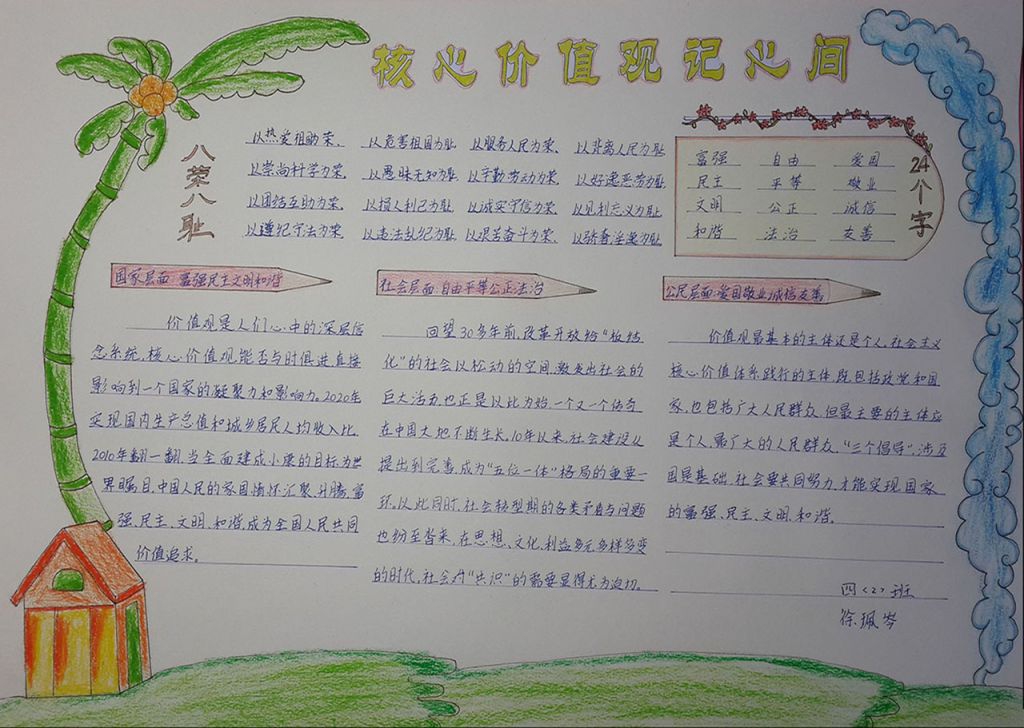 核心价值观记心间
八荣八耻
以热爱祖助荣， 以危害祖国为耻 以服务人民为荣， 以背离人民为耻
以崇尚科学为荣， 以愚昧无知为耻 以辛勤劳动为荣， 以好逸恶劳为耻
以团结互助为荣， 以损人利己为耻 以诚实守信为荣， 以见利忘义为耻
以遵纪守法为荣， 以违法乱纪为耻 以艰苦奋斗为荣， 以骄奢淫逸为耻
24个字
富强 自由 爱国
民主 平等 敬业
文明 公正 诚信
和谐 法治 友善
国家层面：富强民主文明和谐
价值观是人们心中的深层信
念系统，核心价值观，能否与时俱进，直接
影响到一个国家的凝聚力和影响力。2020年
实现国内生产总值和城乡居民人均收入比
2010年翻一翻，当全面建成小康的目标为世
界瞩目，中国人民的家国情怀汇聚，升腾，富
强、民主、文明、和谐成为全国人民共同
价值追求。
社会层面：自由平等公正法治
回望30多年前，改革开放给“板结
化”的社会以松动的空间，激发出社会的
巨大活力，也正是以此为始，一个又一个传奇
在中国大地不断生长，10年以来，社会建设从
提出到完善，成为“五位一体”格局的重要一
环。从此同时，社会转型期的各类矛盾与问题
也纷至沓来，在思想、文化、利益多元多样多变
的时代，社会对“共识”的需要显得尤为迫切。
公民层面：爱国敬业诚信友善
价值观最基本的主体还是个人，社会主义
核心价值体系践行的主体，既包括政党和国
家，也包括广大人民群众，但最主要的主体应
是个人，最广大的人民群众，“三个倡导”，涉及
国是基础，社会要共同努力，才能实现国家
的富强、民主、文明、和谐。
四〈2〉班
徐珮岑